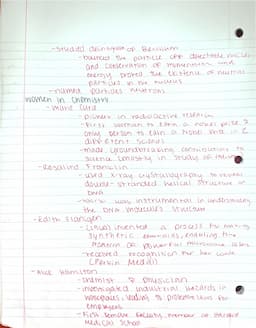 - studied disintegration of Beryllium
- balanced the particle of directive nuclei
and conservation of momentum and
energy proved the existence of neutral
particles in the nucleus
- named particles neutrons
Women in Chemistry
- Marie Curie
- pioneer in radioactive research
- First woman to earn a nobel prize &
only person to earn a nobel prize in 2
different sciences
- made groundbreaking contributions to
science chemistry in study of
- Rosalind Franklin
- used x-ray crystallography to reveal
double-stranded helical structure of
DNA
- work was instrumental in understanding
the DNA molecule's structure
- Edith Flanigen
- invented a process for making
synthetic emeralds, enabling the
powerful microwave
- received recognition for her work
(Perkin Medal)
- Alice Hamilton
- chemist & physician
- investigated industrial hazards in
workplaces, leading to protections for
employees
- First female faculty member of Harvard
Medical School